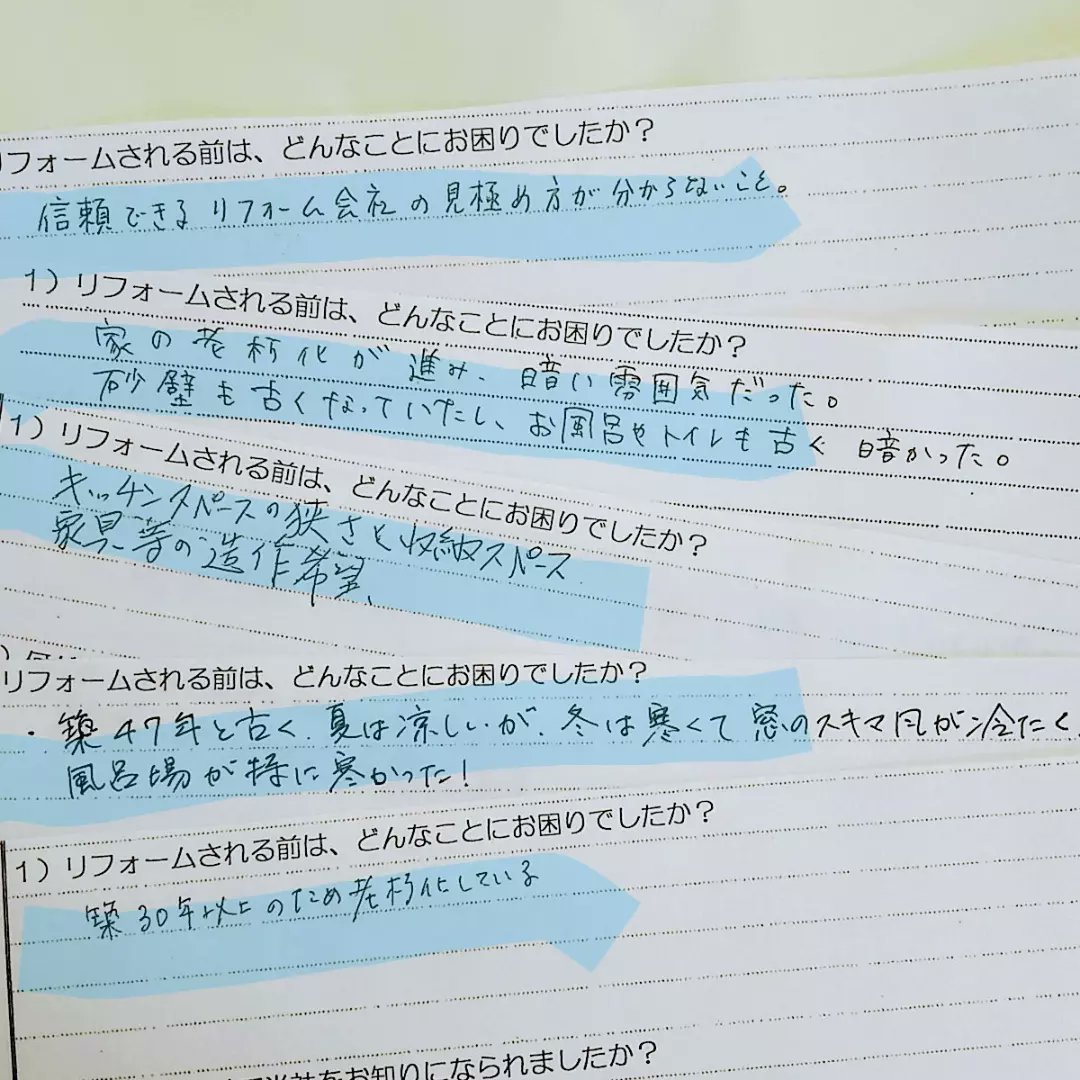 リフォームされる前は、どんなことにお困りでしたか？
信頼できるリフォーム会社の見極め方が分からないこと。
1）リフォームされる前は、どんなことにお困りでしたか？
家の老朽化が進み、暗い雰囲気だった。
砂壁も古くなっていたし、お風呂やトイレも古く暗かった。
1）リフォームされる前は、どんなことにお困りでしたか？
キッチンスペースの狭さと収納スペース
家具等の造作希望、
リフォームされる前は、どんなことにお困りでしたか？
・築47年と古く、夏は涼しいが、冬は寒くて窓のスキマ風が冷たく
風呂場が特に寒かった！
1）リフォームされる前は、どんなことにお困りでしたか？
築30年以上のため老朽化している
をお知りになられましたか？